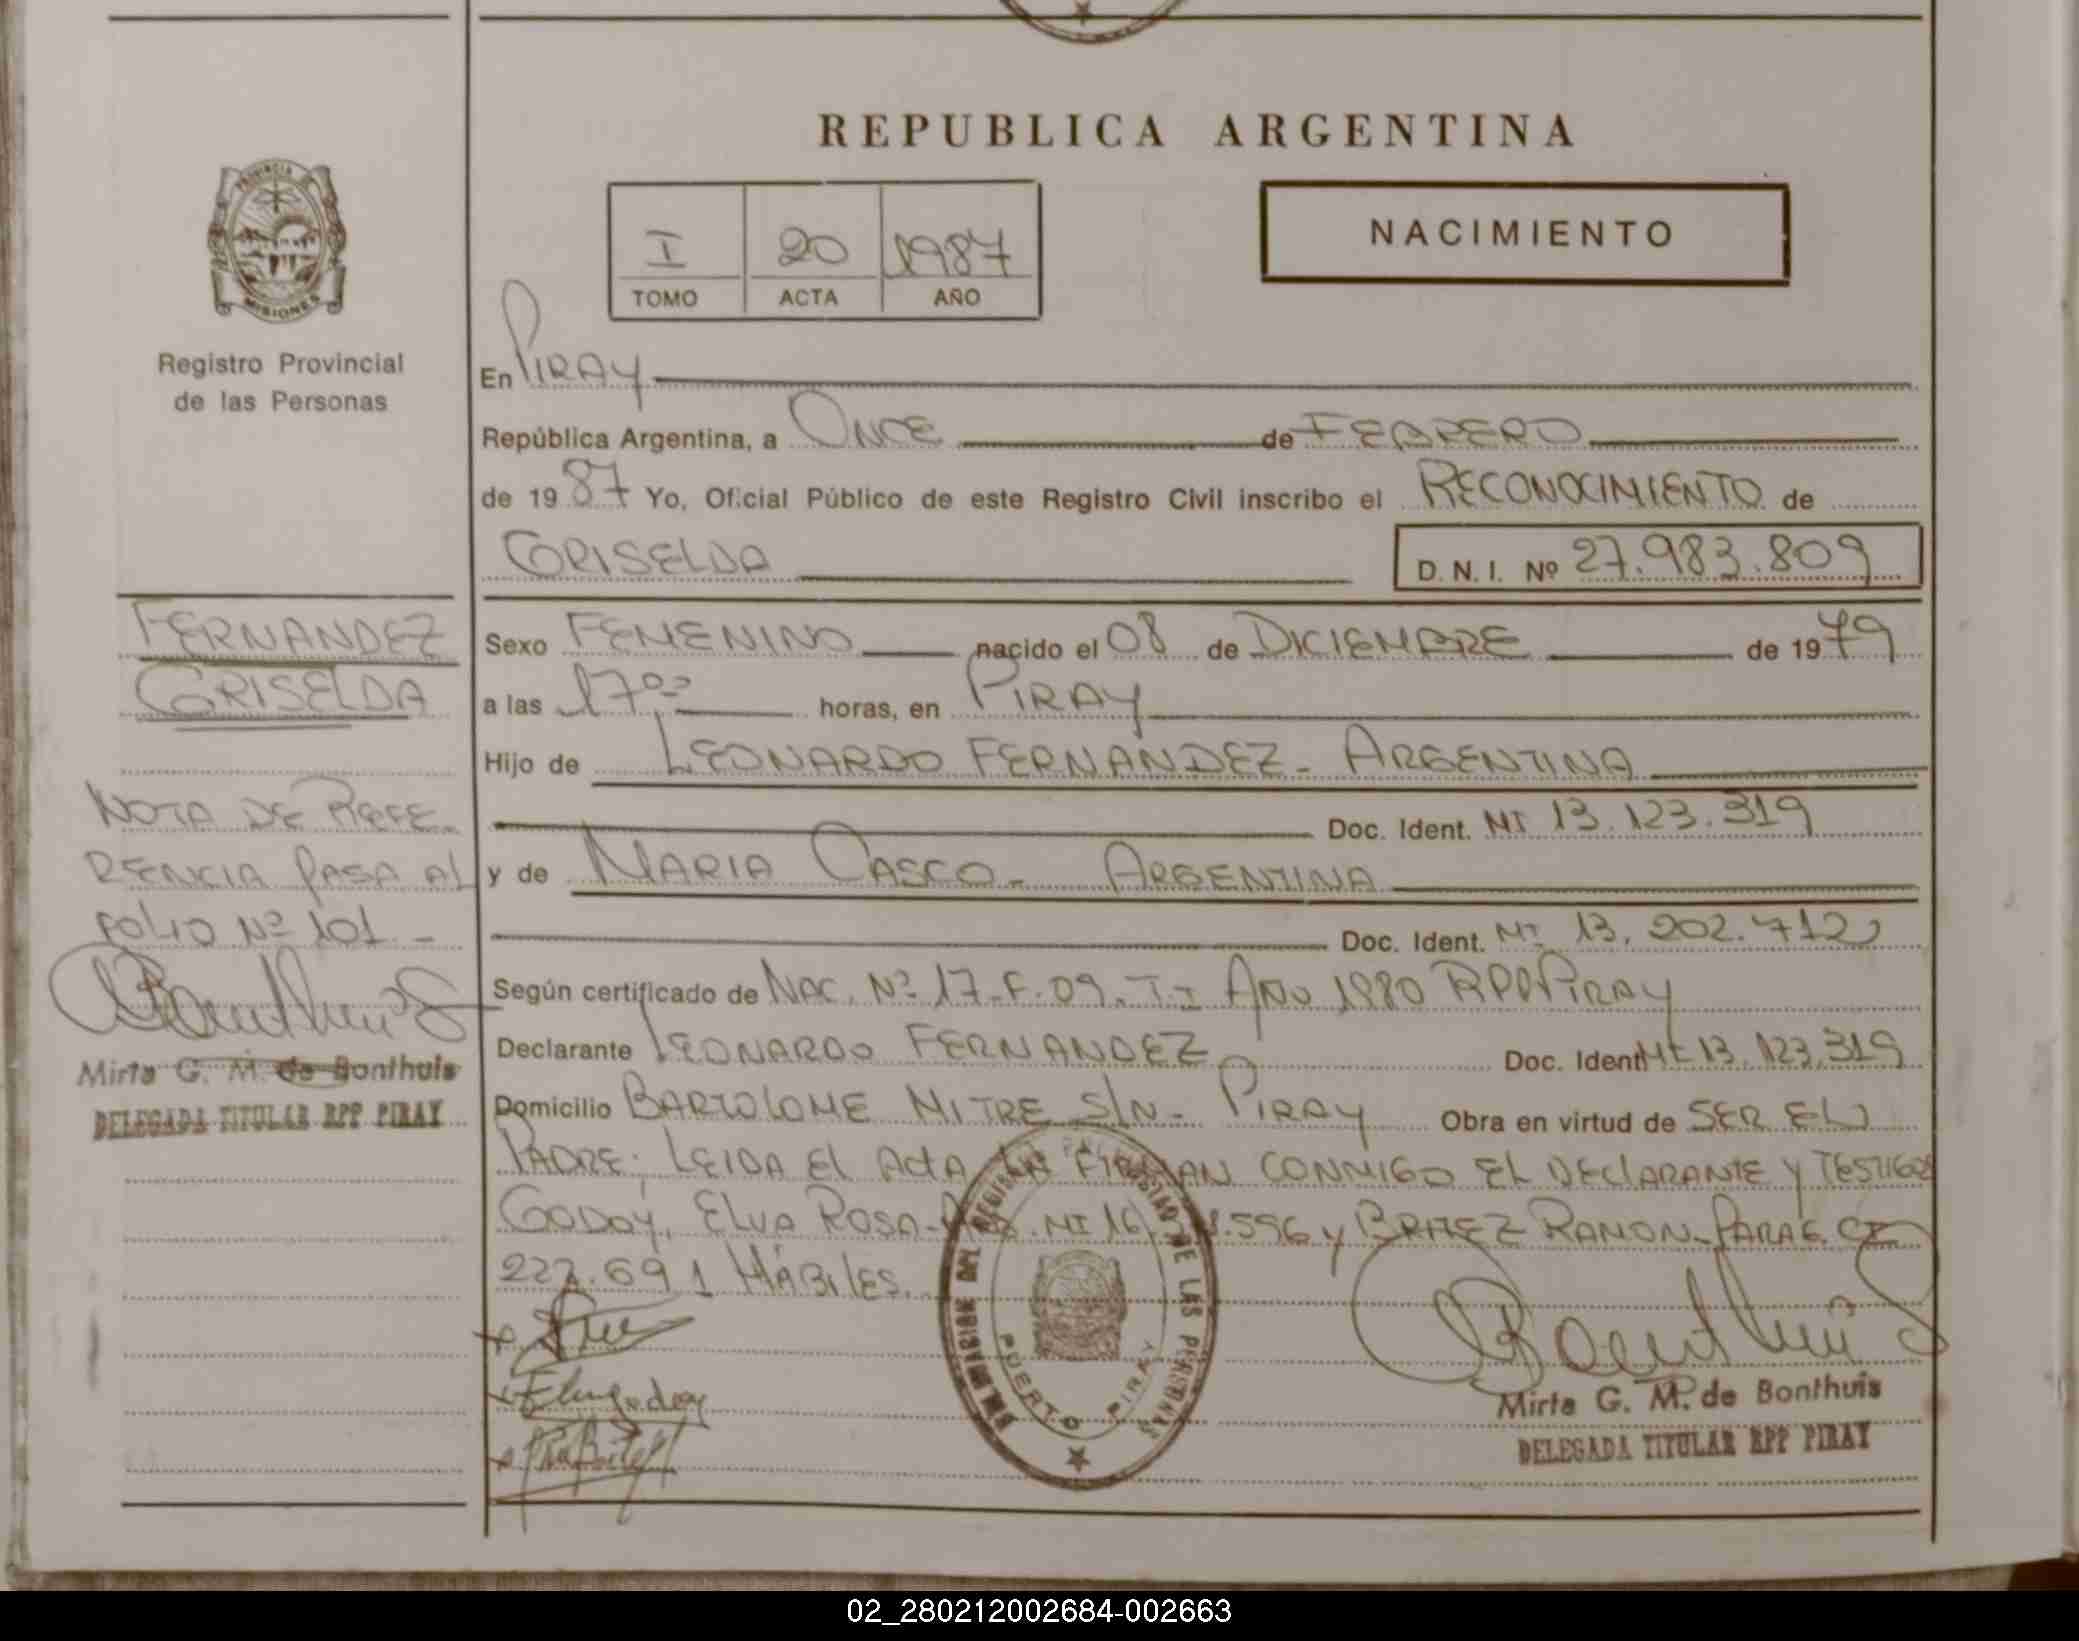 REPUBLICA ARGENTINA
PROVINCIA DE
MISIONES
Registro Provincial
de las Personas
I 20 1987
TOMO ACTA AÑO
NACIMIENTO
En PIRAY
República Argentina, a ONCE de FEBRERO
de 1987 Yo, Oficial Público de este Registro Civil inscribo el RECONOCIMIENTO de
GRISELDA D.N.I. Nº 27.983.809
FERNANDEZ
GRISELDA
NOTA DE REFE-
RENCIA PASA AL
FOLIO Nº 101-
Mirta G. M. de Bonthuis
DELEGADA TITULAR RPP PIRAY
Sexo FEMENINO nacido el 08 de DICIEMBRE de 1979
a las 17 00 horas, en PIRAY
Hijo de LEONARDO FERNANDEZ- ARGENTINA
Doc. Ident. MI 13.123.319
y de MARIA CASCO- ARGENTINA
Doc. Ident. MI 13.202.712
Según certificado de NAC. Nº 17-F.09-T-I AÑO 1980 RPP PIRAY
Declarante LEONARDO FERNANDEZ Doc. Ident MI 13.123.319
Domicilio BARTOLOME MITRE S/N- PIRAY Obra en virtud de SER EL
PADRE. LEIDA EL ACTA LA FIRMAN CONMIGO EL DECLARANTE Y TESTIGOS
GODOY, ELVA ROSA- MI 16. .596 y BRITEZ RAMON-PARAG. CI
222.691 HÁBILES.
PUERTO PIRAY
Mirta G. M. de Bonthuis
DELEGADA TITULAR RPP PIRAY
02_280212002684-002663